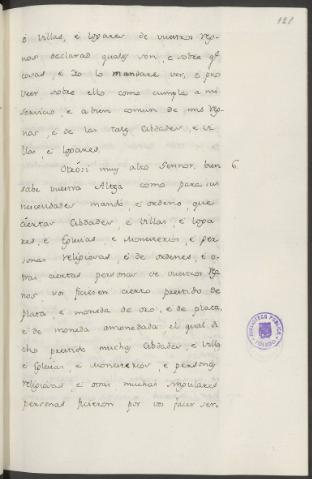 121
ó villas, é logares de vuestros rey-
nos declarad quales son, é sobre qe
cosas, é Yo lo mandaré ver, é pro
veer sobre ello como cumpla a mi
servicio, e a bien comun de mis rey
nos, é de las tales Cibdades, e vi-
llas, é logares.
Otrósi muy alto Sennor, bien 6.
sabe vuestra Alteza como para sus
necesidades mandó, é ordenó, que
ciertas Cibdades, é villas, é loga
res, e Eglesias, e Monesterios, e per
sonas religiosas, é de ordenes, é o
tras ciertas personas de vuestros rey
nos vos ficiesen cierto prestido de
plata, e moneda de oro, é de plata,
é de moneda amonedada, el qual di
cho prestido muchas Cibdades, e villas
e Eglesias, e Monesterios, e personas
religiosas, e otras muchas singulares
personas ficieron por vos facer ser-
BIBLIOTECA PUBLICA
TOLEDO